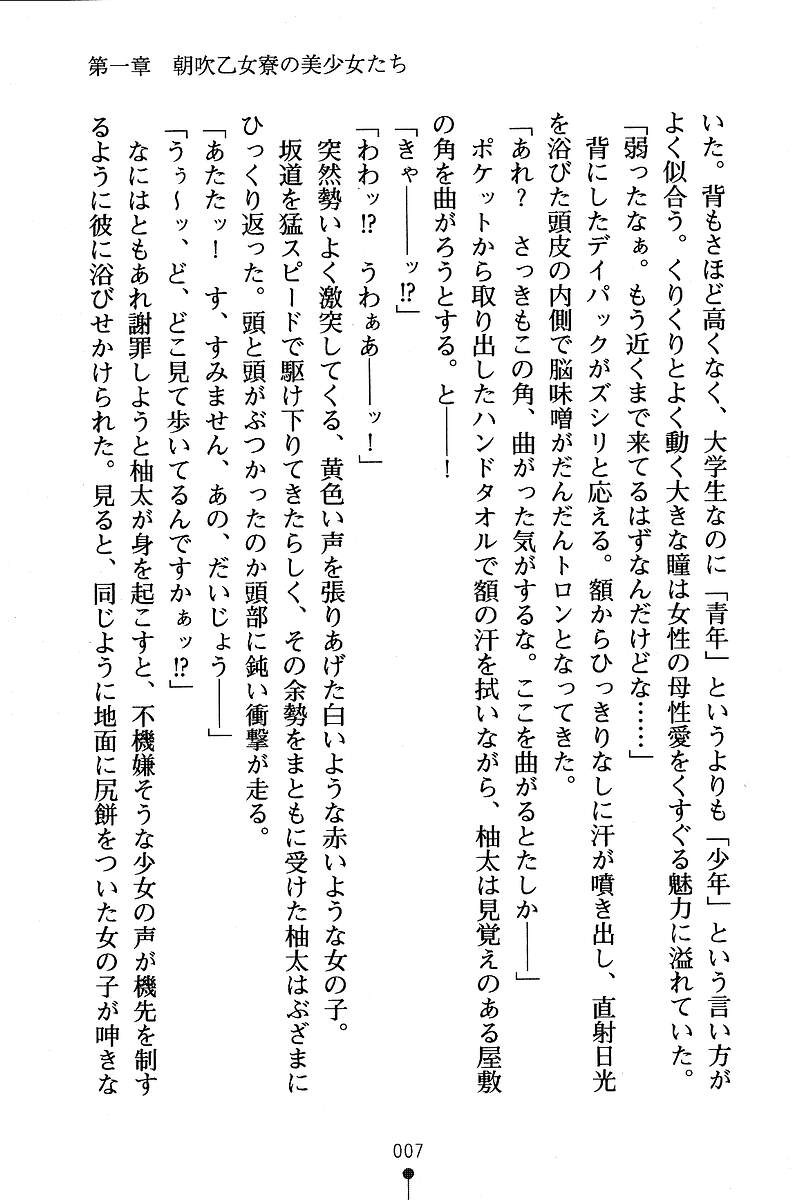 第一章　朝吹乙女寮の美少女たち
いた。背もさほど高くなく、大学生なのに「青年」というよりも「少年」という言い方が
よく似合う。くりくりとよく動く大きな瞳は女性の母性愛をくすぐる魅力に溢れていた。
「弱ったなぁ。もう近くまで来てるはずなんだけどな……」
　背にしたデイパックがズシリと応える。額からひっきりなしに汗が噴き出し、直射日光
を浴びた頭皮の内側で脳味噌がだんだんトロンとなってきた。
「あれ？　さっきもこの角、曲がった気がするな。ここを曲がるとたしか――」
　ポケットから取り出したハンドタオルで額の汗を拭いながら、柚太は見覚えのある屋敷
の角を曲がろうとする。と――！
「きゃ――ッ!?」
「わわッ!?　うわぁあ――ッ！」
　突然勢いよく激突してくる、黄色い声を張りあげた白いような赤いような女の子。
　坂道を猛スピードで駆け下りてきたらしく、その余勢をまともに受けた柚太はぶざまに
ひっくり返った。頭と頭がぶつかったのか頭部に鈍い衝撃が走る。
「あたたッ！　す、すみません、あの、だいじょう――」
「うぅ～ッ、ど、どこ見て歩いてるんですかぁッ!?」
　なにはともあれ謝罪しようと柚太が身を起こすと、不機嫌そうな少女の声が機先を制す
るように彼に浴びせかけられた。見ると、同じように地面に尻餅をついた女の子が呻きな
007